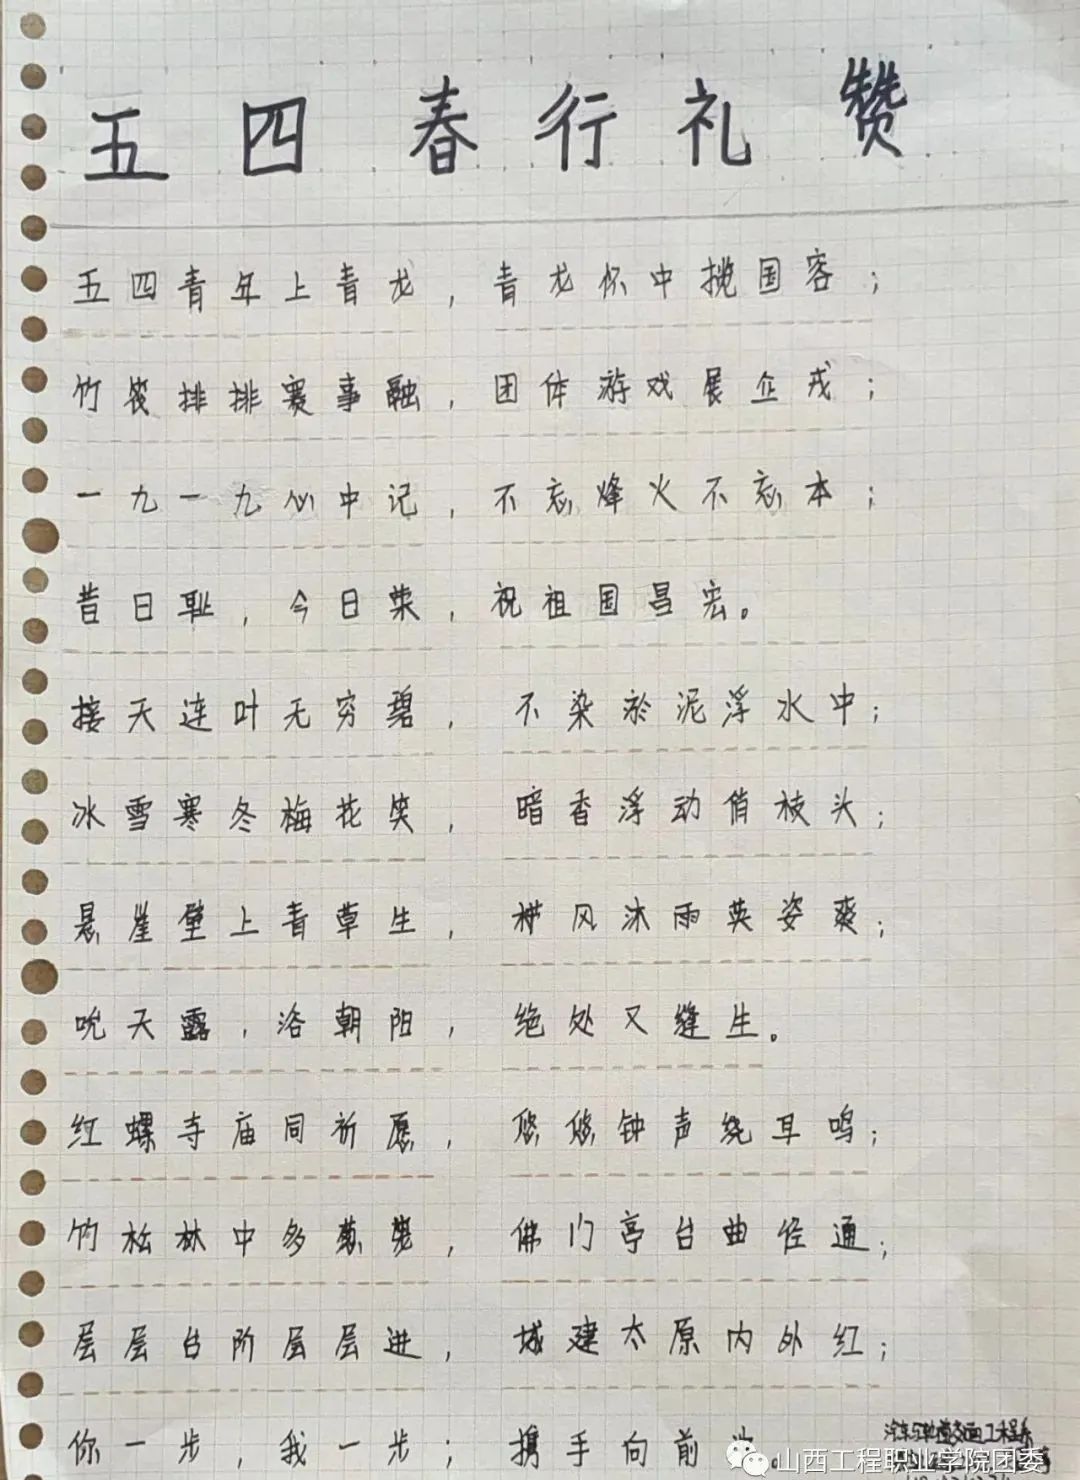 五四春行礼赞
五四青年上青龙，青龙怀中揽国容；
竹筏排排赛事融，团体游戏展企戎；
一九一九心中记，不忘烽火不忘本；
昔日耻，今日荣，祝祖国昌宏。
接天连叶无穷碧，不染於泥浮水中；
冰雪寒冬梅花笑，暗香浮动俏枝头；
悬崖壁上青草生，栉风沐雨英姿爽；
吮天露，浴朝阳，绝处又缝生。
红螺寺庙同祈愿，悠悠钟声绕耳鸣；
竹松林中多葱茏，佛门亭台曲径通；
层层台阶层层进，城建太原内外红；
你一步，我一步；携手向前
山西工程职业学院团委